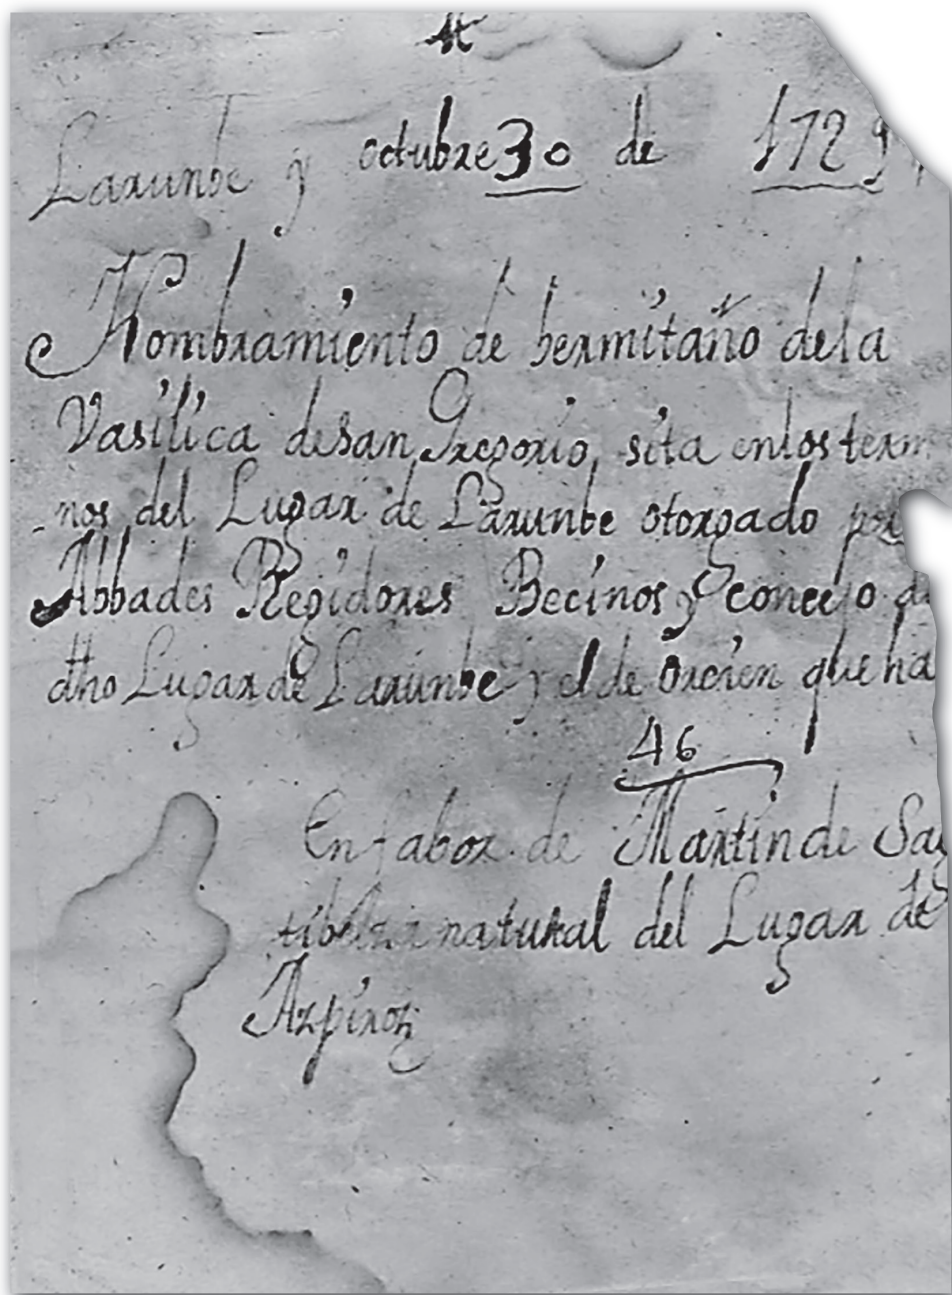 Larumbe y octubre 30 de 1729
Nombramiento de hermitaño dela
Vasilica desan Gregorio sita enlos term
nos del Lugar de Larumbe otorgado por
Abbades Regidores Becinos y concejo de
dho Lugar de Larumbe y el de Orerien que ha
46
En fabor de Martin de Sa
natural del Lugar de
Azpiroz